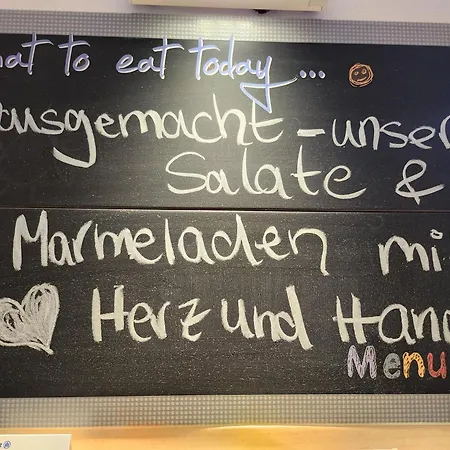 hat to eat today ...
ausgemacht - unser
Salate &
Marmeladen mi
Herz und Han
Menu